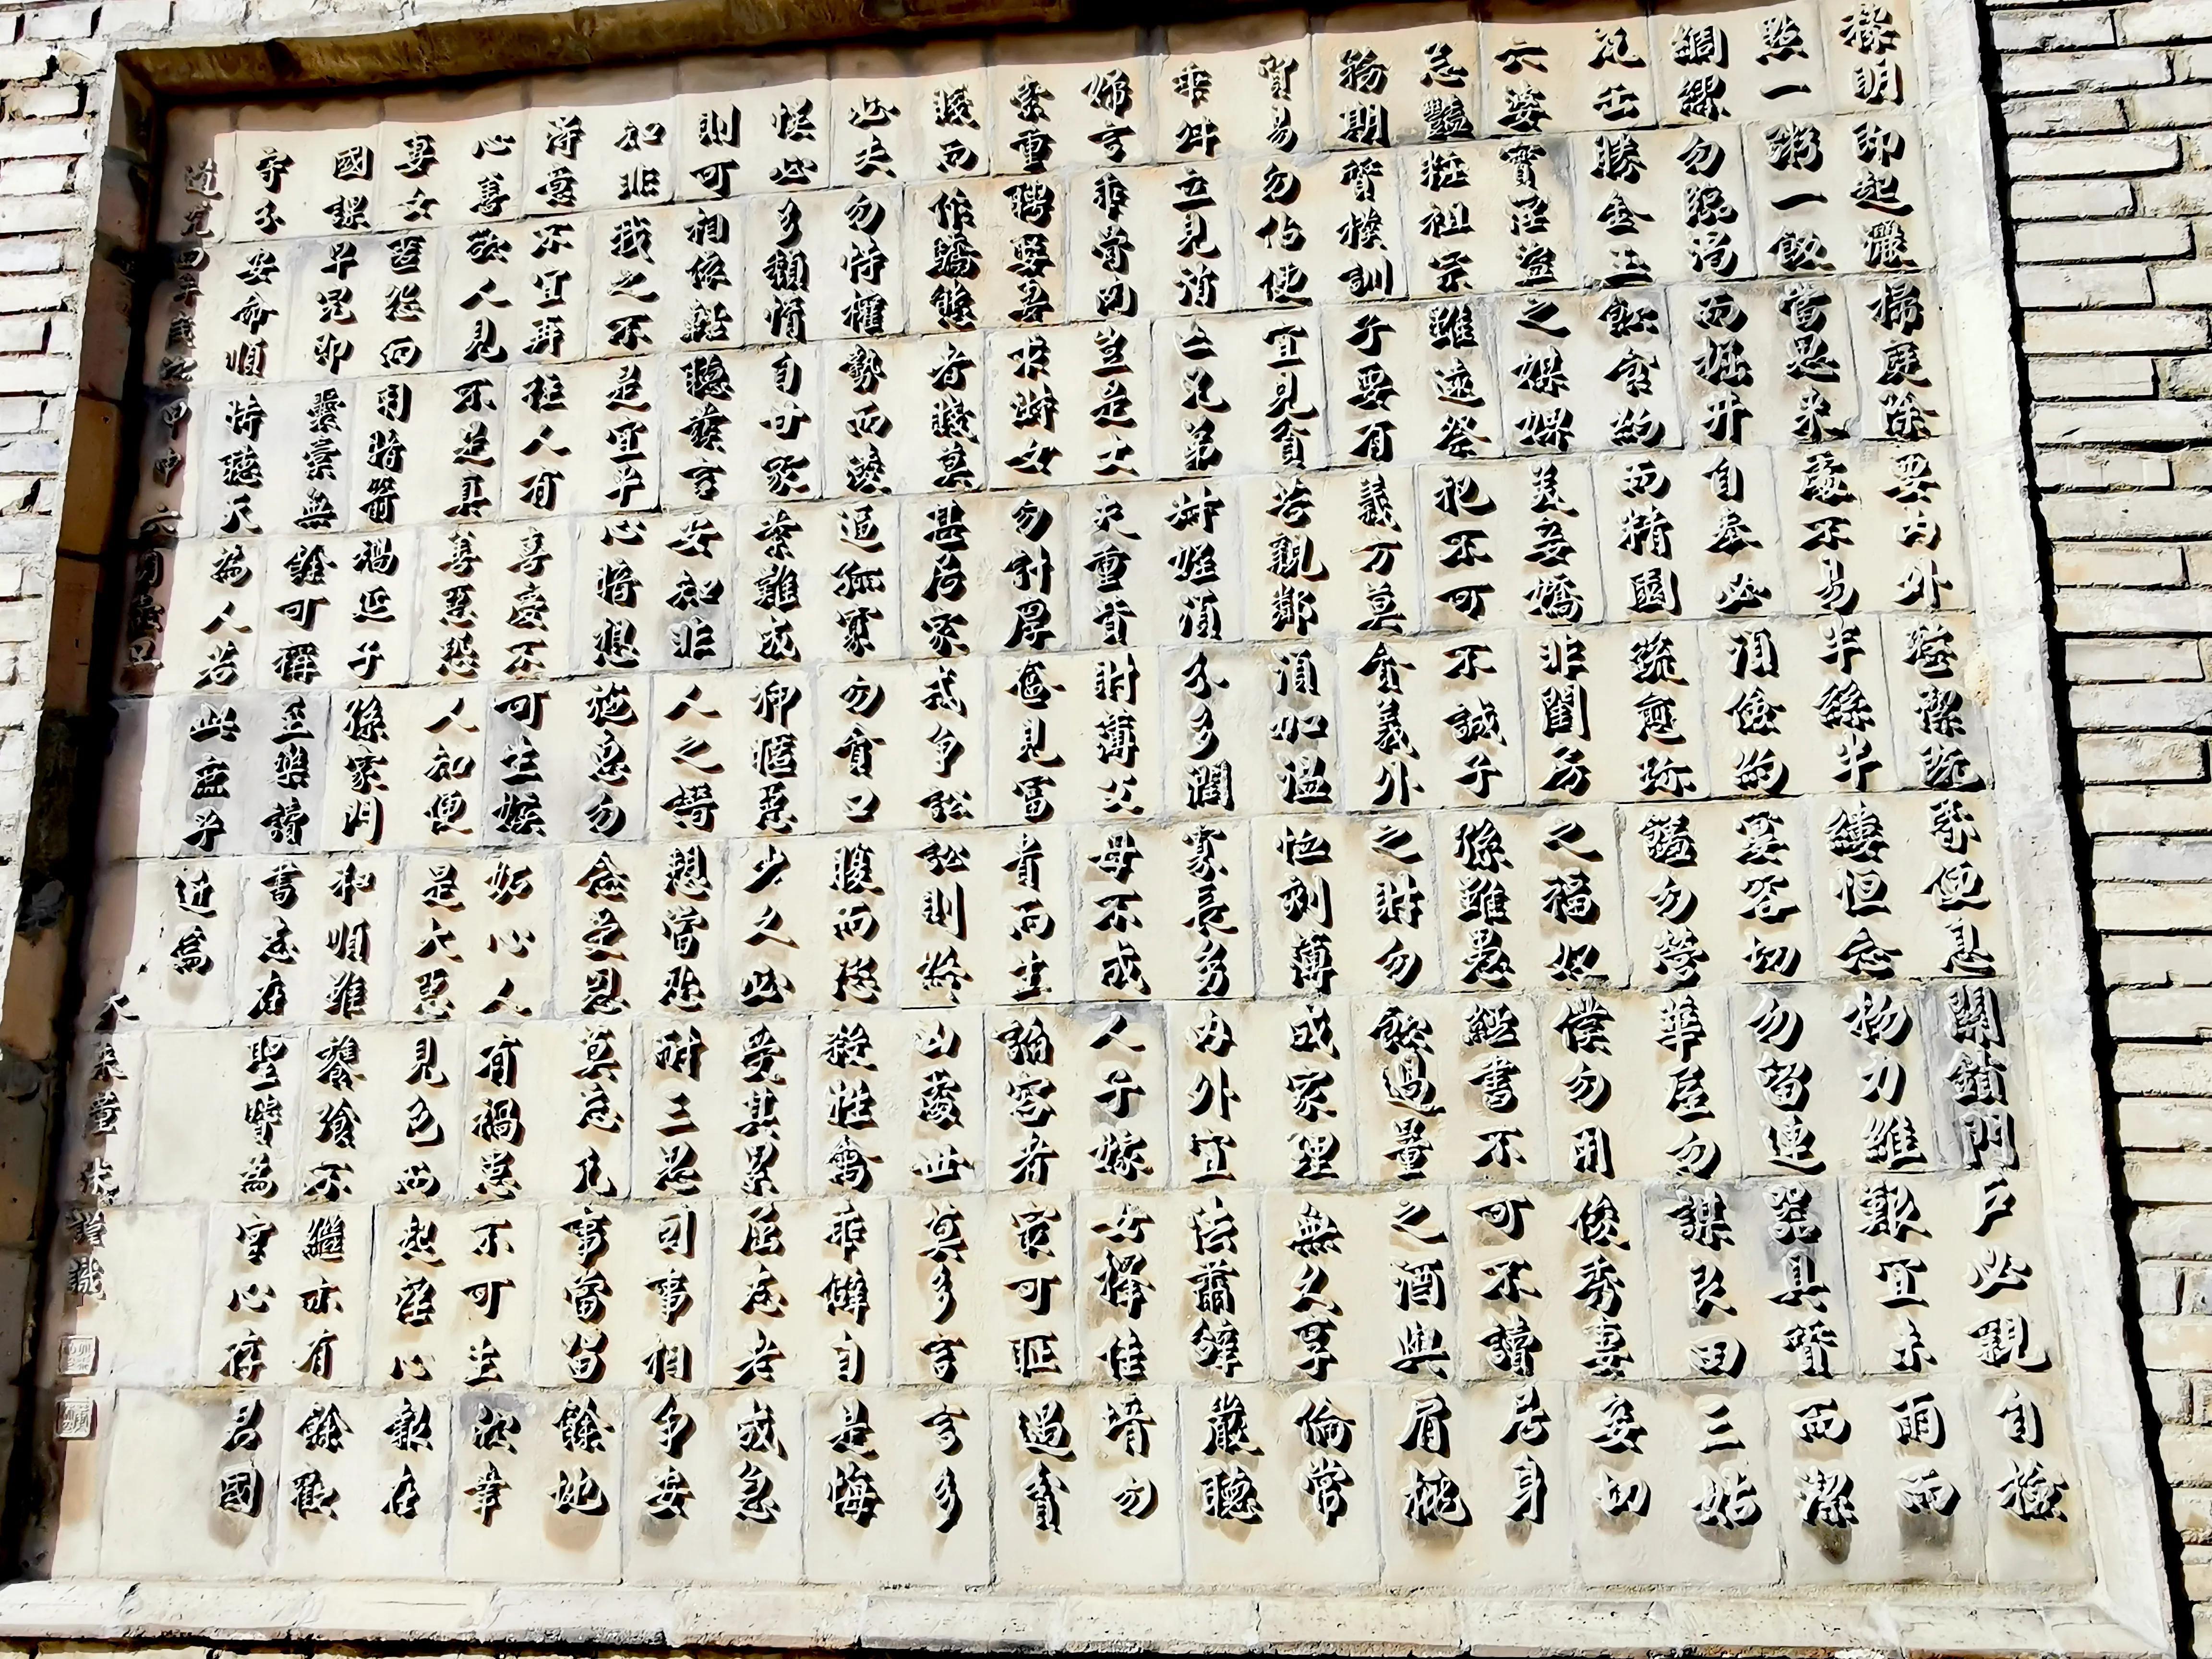 黎明即起灑掃庭除要內外整潔既昏便息關鎖門戶必親自檢
點一粥一飯當思來處不易半絲半縷恒念物力維艱宜未雨而
綢繆勿臨渴而掘井自奉必須儉約宴客切勿留連器具質而潔
瓦缶勝金玉飲食約而精園蔬愈珍饈勿營華屋勿謀良田三姑
六婆實淫盜之媒婢美妾嬌非閨房之福奴僕勿用俊秀妻妾切
忌豔粧祖宗雖遠祭祀不可不誠子孫雖愚經書不可不讀居身
務期質樸訓子要有義方莫貪義外之財勿飲過量之酒與肩挑
貿易勿佔便宜見貧苦親鄰須加溫恤刻薄成家理無久享倫常
乖舛立見消亡兄弟叔姪須分多潤寡長幼內外宜法肅辭嚴聽
婦言乖骨肉豈是丈夫重貲財薄父母不成人子嫁女擇佳壻勿
索重聘娶妻求淑女勿計厚奩見富貴而生諂容者最可恥遇貧
賤而作驕態者賤莫甚居家戒爭訟訟則終凶處世莫多言言多
必失勿恃權勢而凌逼孤寡勿貪口腹而恣殺牲禽乖僻自是悔
悞必多頹惰自甘家業難成狎暱惡少久必受其累屈志老成急
則可相依輕聽發言安知非人之譖想當忍耐三思因事相爭安
知非我之不是宜平心暗想施惠勿念受恩莫忘凡事當留餘地
得意不宜再往人有喜慶不可生嫉妬心人有禍患不可生欣幸
心善欲人見不是真善惡恐人知便是大惡見色而起淫心報在
妻女匿怨而用暗箭禍延子孫家門和順雖饔飧不繼亦有餘歡
國課早完即囊橐無餘可稱至樂讀書志在聖賢為官心存君國
守分安命順時聽天為人若此庶乎近焉
道光四年歲次甲申六月 旦 董 謹識